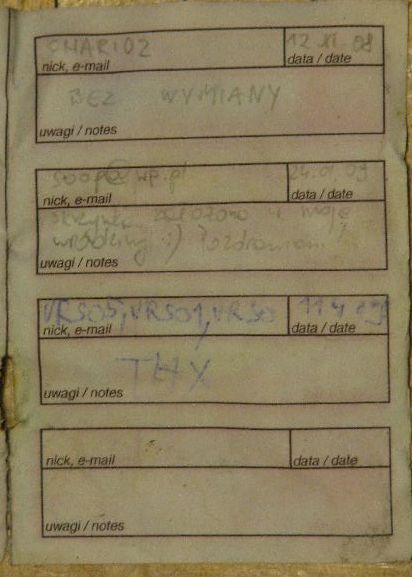 SMARIOZ 12 XI 08
nick, e-mail data / date
BEZ WYMIANY
uwagi / notes
soop@wp.pl 24.01.09
nick, e-mail data / date
skrzynkę założono w moje
urodziny :) Pozdrawiam!
uwagi / notes
VRS05, VRS01, VRS0 11 4 09
nick, e-mail data / date
THX
uwagi / notes
nick, e-mail data / date
uwagi / notes